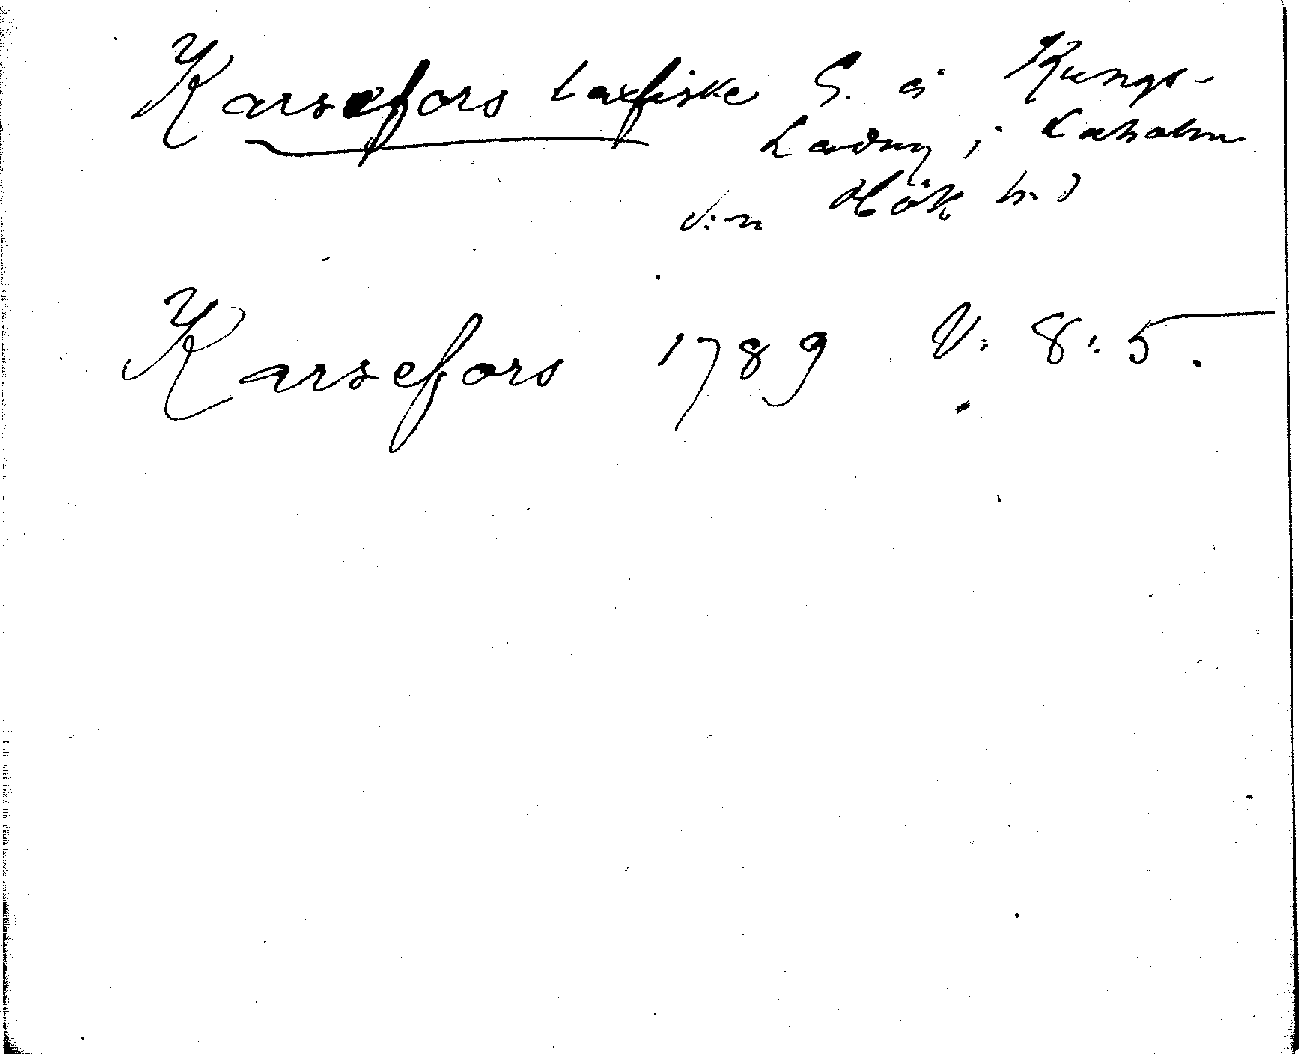 Karsefors laxfiske S. å Kungs-
Ladug i Laholm
v:n Hök h:d
Karsefors 1789 V: 8:5.